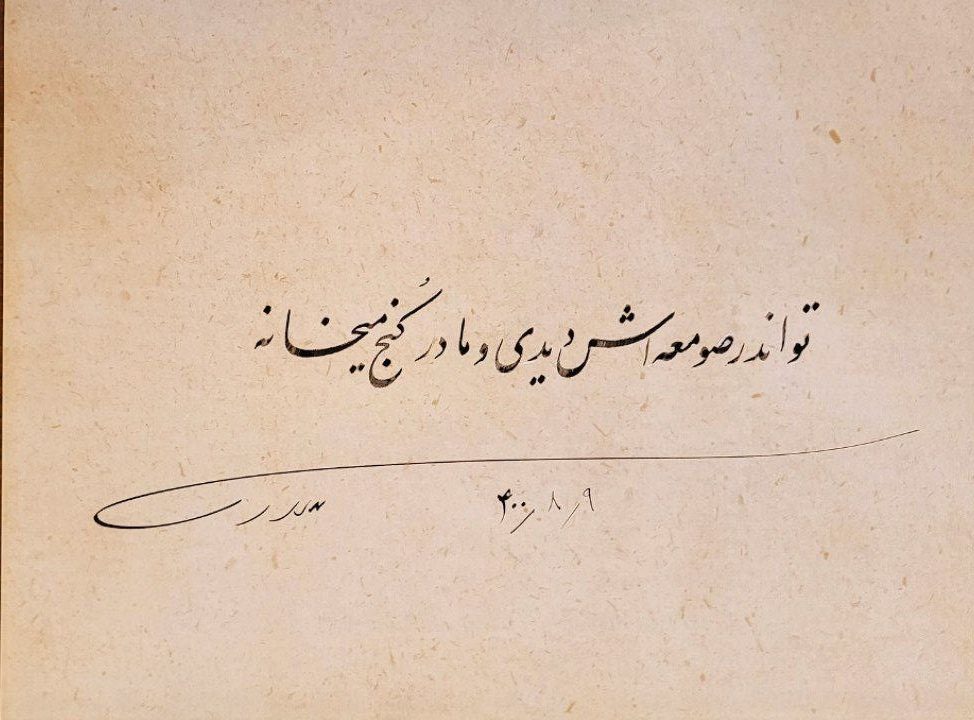 تو اندر صومعه اش دیدی و ما در کُنج میخانه
۴۰۰/۸/۹